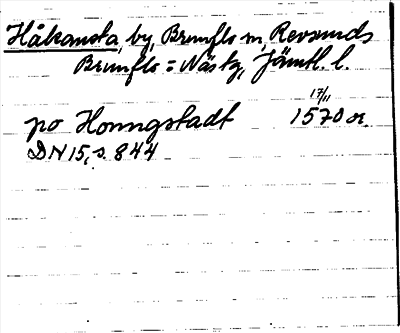 Håkansta, by, Brunflo sn, Revsunds
Brunflo = Näs tg, Jämtl. l.
po Honngstadt 17/11 1570 or.
DN 15, s. 844